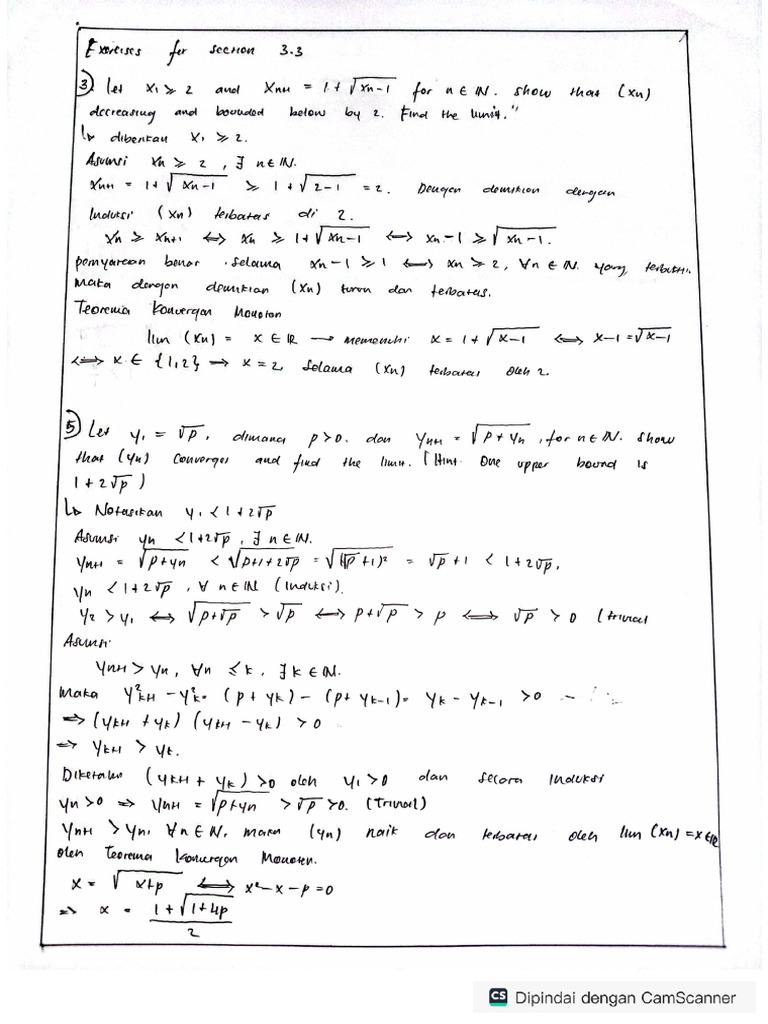 1
Exercises for section 3.3
3) Let x₁ ⩾ 2 and xₙ₊₁ = 1 + √(xₙ-1) for n ∈ ℕ. show that (xₙ)
decreasing and bounded below by 2. Find the limit."
↳ diberikan x₁ ⩾ 2.
Asumsi xₙ ⩾ 2 , ∃ n ∈ ℕ.
xₙ₊₁ = 1 + √(xₙ-1) ⩾ 1 + √(2-1) = 2. Dengan demikian dengan
Induksi (xₙ) terbatas di 2.
xₙ ⩾ xₙ₊₁ ⟺ xₙ ⩾ 1 + √(xₙ-1) ⟺ xₙ-1 ⩾ √(xₙ-1).
pernyataan benar selama xₙ-1 ⩾ 1 ⟺ xₙ ⩾ 2, ∀n ∈ ℕ. yang terbukti.
Maka dengan demikian (xₙ) turun dan terbatas.
Teorema Konvergen Monoton
lim (xₙ) = x ∈ ℝ → memenuhi x = 1 + √(x-1) ⟺ x-1 = √(x-1)
⟺ x ∈ {1,2} ⇒ x = 2 selama (xₙ) terbatas oleh 2.
5) Let y₁ = √p, dimana p>0. dan yₙ₊₁ = √(p + yₙ), for n ∈ ℕ. show
that (yₙ) converges and find the limit. [Hint One upper bound is
1 + 2√p)
↳ Notasikan y₁ < 1+2√p
Asumsi yₙ < 1+2√p , ∃ n ∈ ℕ.
yₙ₊₁ = √(p+yₙ) < √(p+1+2√p) = √((√p+1)²) = √p +1 < 1+2√p.
yₙ < 1+2√p , ∀ n ∈ ℕ (Induksi).
y₂ > y₁ ⟺ √(p+√p) > √p ⟺ p+√p > p ⟺ √p > 0 (trivial
Asumsi
yₙ₊₁ > yₙ, ∀n ⩽ k, ∃ k ∈ ℕ.
Maka y²ₖ₊₁ - y²ₖ = (p + yₖ) - (p + yₖ₋₁) = yₖ - yₖ₋₁ > 0
⇒ (yₖ₊₁ + yₖ) (yₖ₊₁ - yₖ) > 0
⇒ yₖ₊₁ > yₖ.
Diketahui (yₖ₊₁ + yₖ) > 0 oleh y₁ > 0 dan secara Induksi
yₙ > 0 ⇒ yₙ₊₁ = √(p+yₙ) > √p > 0. (Trivial)
yₙ₊₁ > yₙ, ∀n ∈ ℕ, maka (yₙ) naik dan terbatas oleh lim (xₙ) = x ∈ ℝ
oleh Teorema Konvergen Monoton.
x = √(x+p) ⟺ x² - x - p = 0
⇒ x = (1 + √(1+4p))/2
CS Dipindai dengan CamScanner